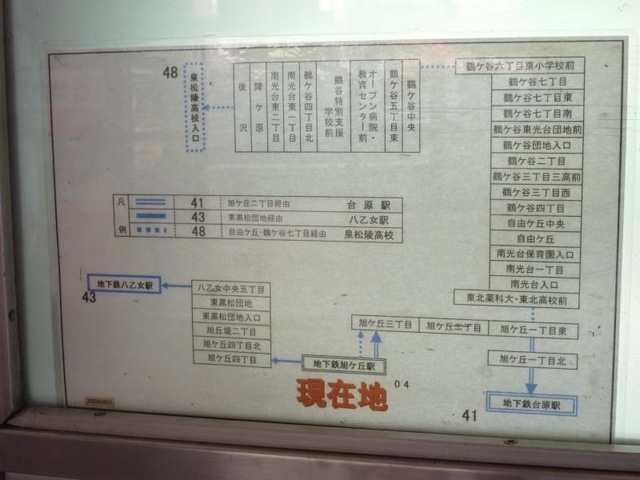 48
泉松陵高校入口
後沢
障ケ原
南光台東二丁目
南光台東一丁目
鶴ケ谷四丁目北
鶴谷特別支援学校前
オープン病院・教育センター前
鶴ケ谷五丁目東
鶴ケ谷中央
鶴ケ谷六丁目東小学校前
鶴ケ谷七丁目
鶴ケ谷七丁目東
鶴ケ谷七丁目南
鶴ケ谷東光台団地前
鶴ケ谷団地入口
鶴ケ谷二丁目
鶴ケ谷三丁目三高前
鶴ケ谷三丁目西
鶴ケ谷四丁目
自由ケ丘中央
自由ケ丘
南光台保育園入口
南光台一丁目
南光台入口
東北薬科大・東北高校前
凡例
41 旭ケ丘二丁目経由 台原駅
43 東黒松団地経由 八乙女駅
48 自由ケ丘・鶴ケ谷七丁目経由 泉松陵高校
地下鉄八乙女駅
43
八乙女中央五丁目
東黒松団地
東黒松団地入口
旭丘堤二丁目
旭ケ丘四丁目北
旭ケ丘四丁目
旭ケ丘三丁目
旭ケ丘二丁目
旭ケ丘一丁目東
旭ケ丘一丁目北
地下鉄旭ケ丘駅
現在地
04
41
地下鉄台原駅